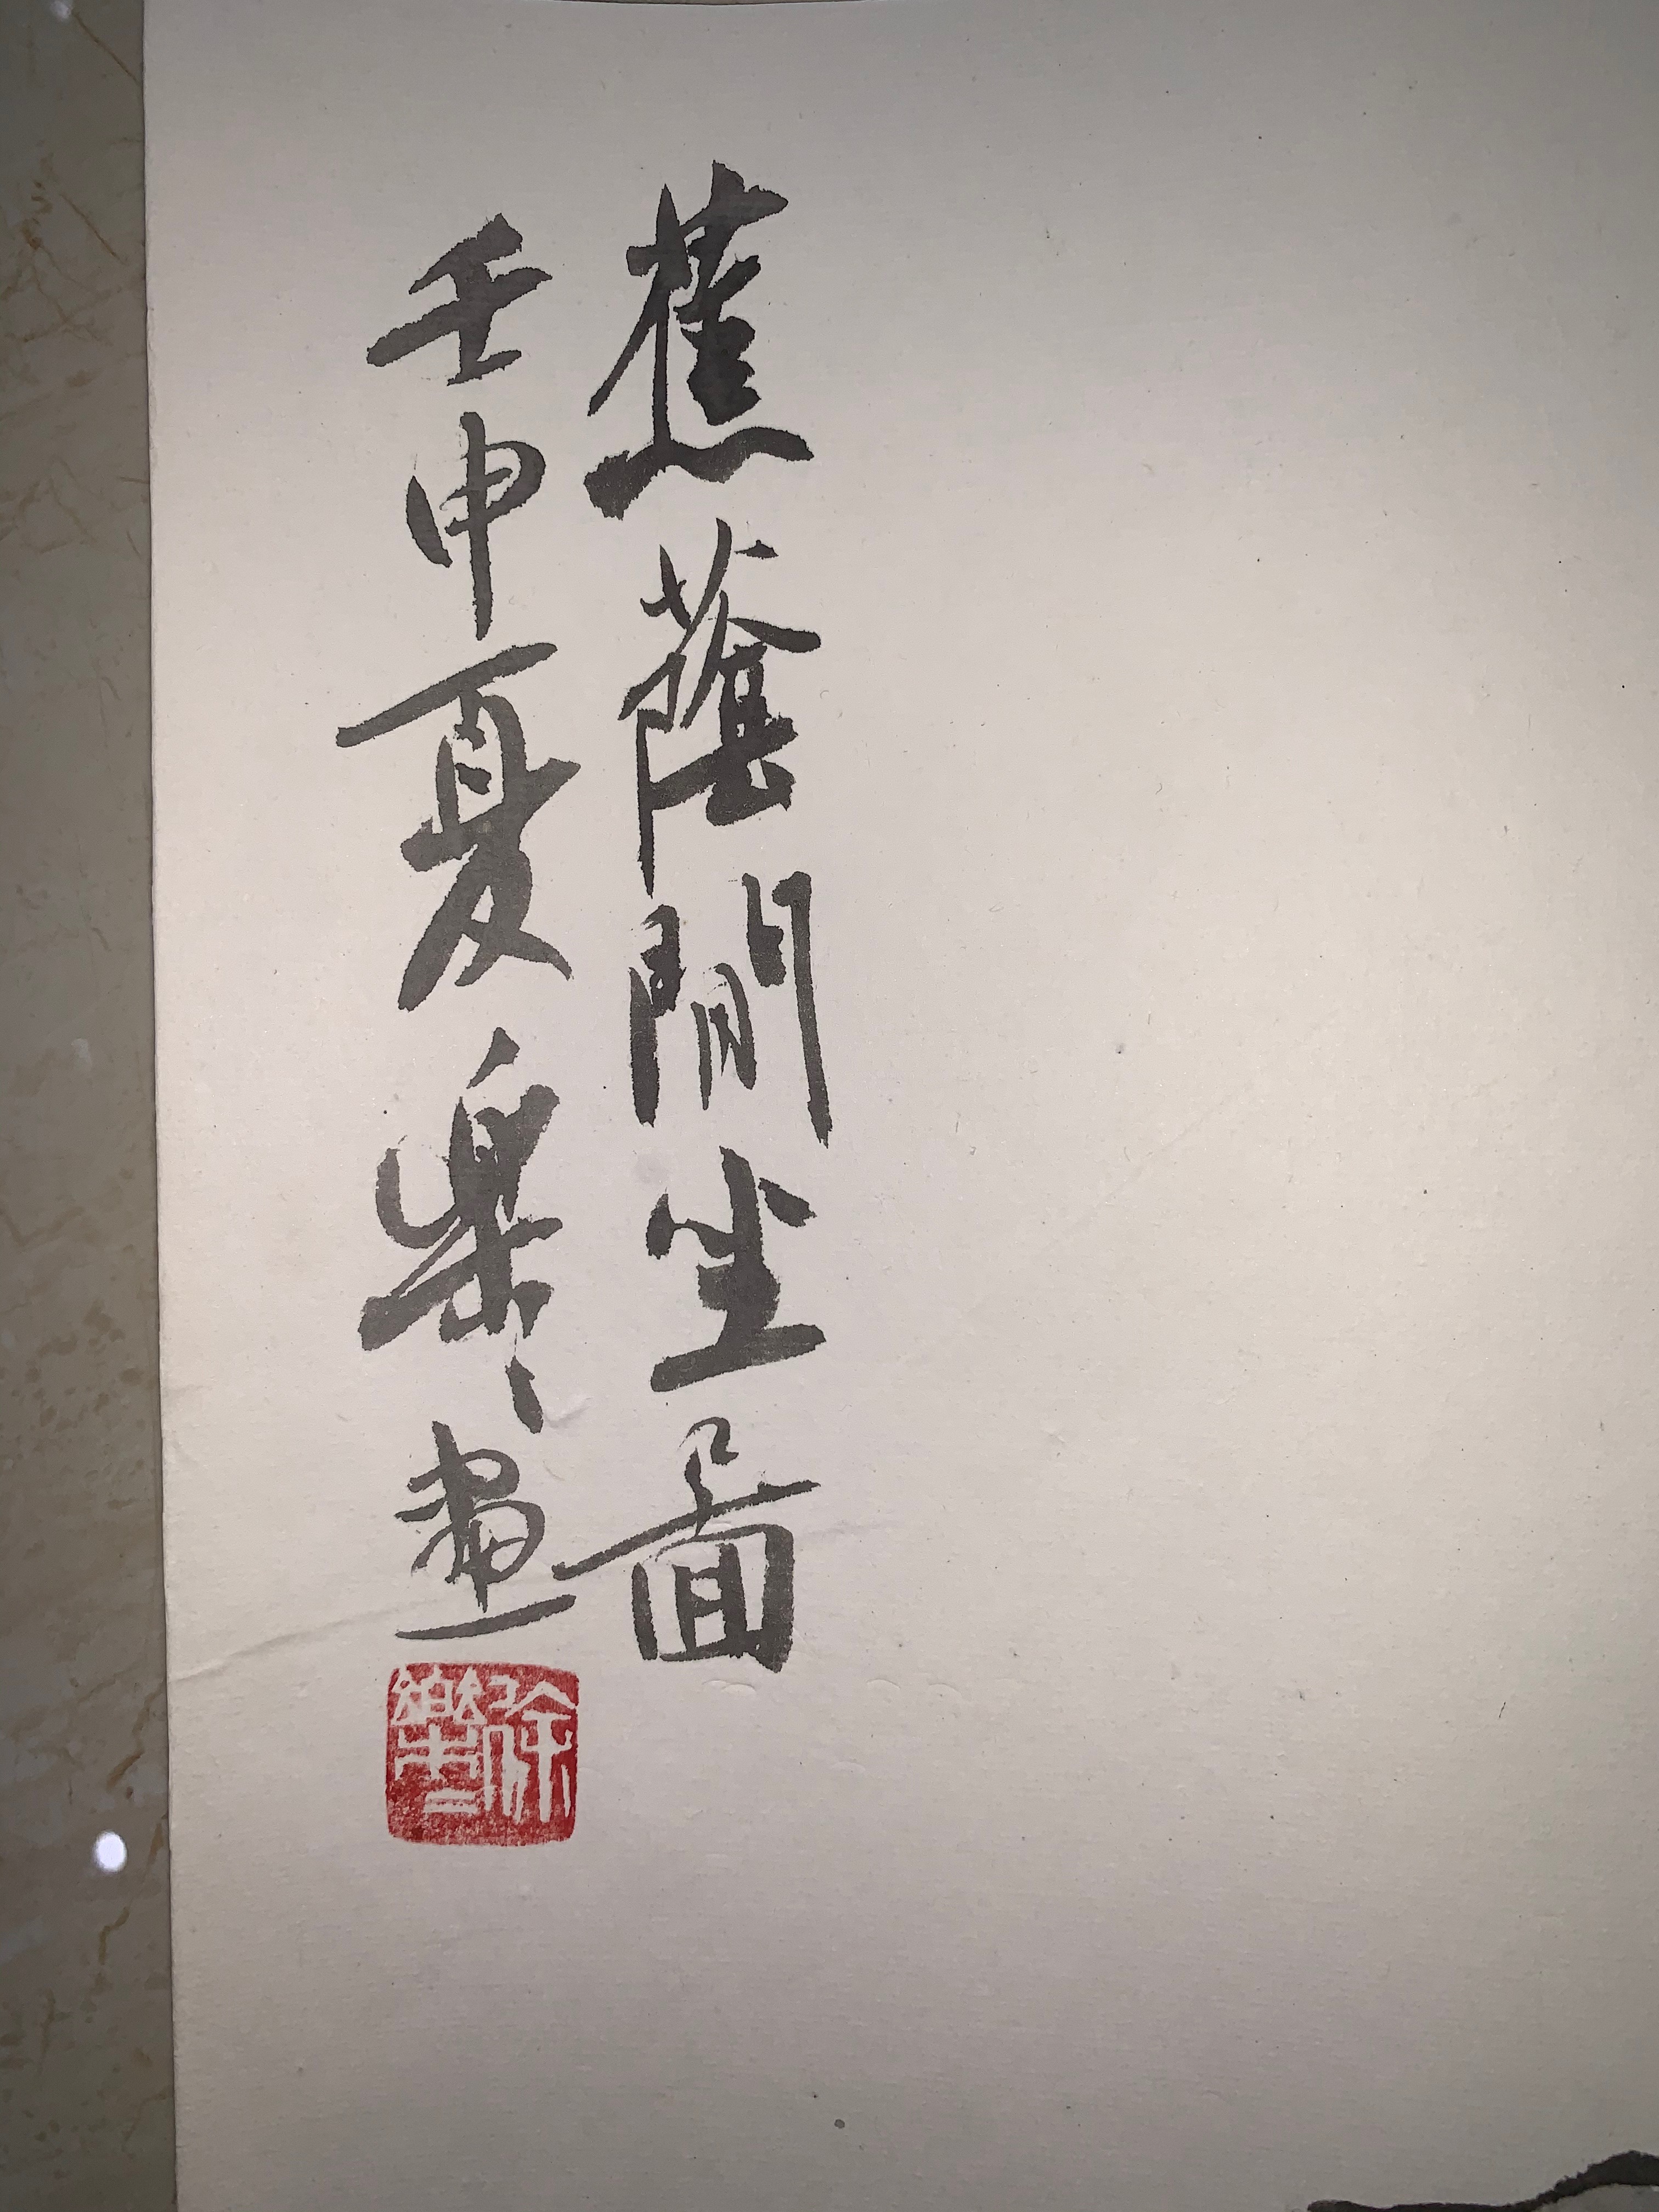 蕉蔭閒坐圖
壬申夏樂樂畫
徐樂樂